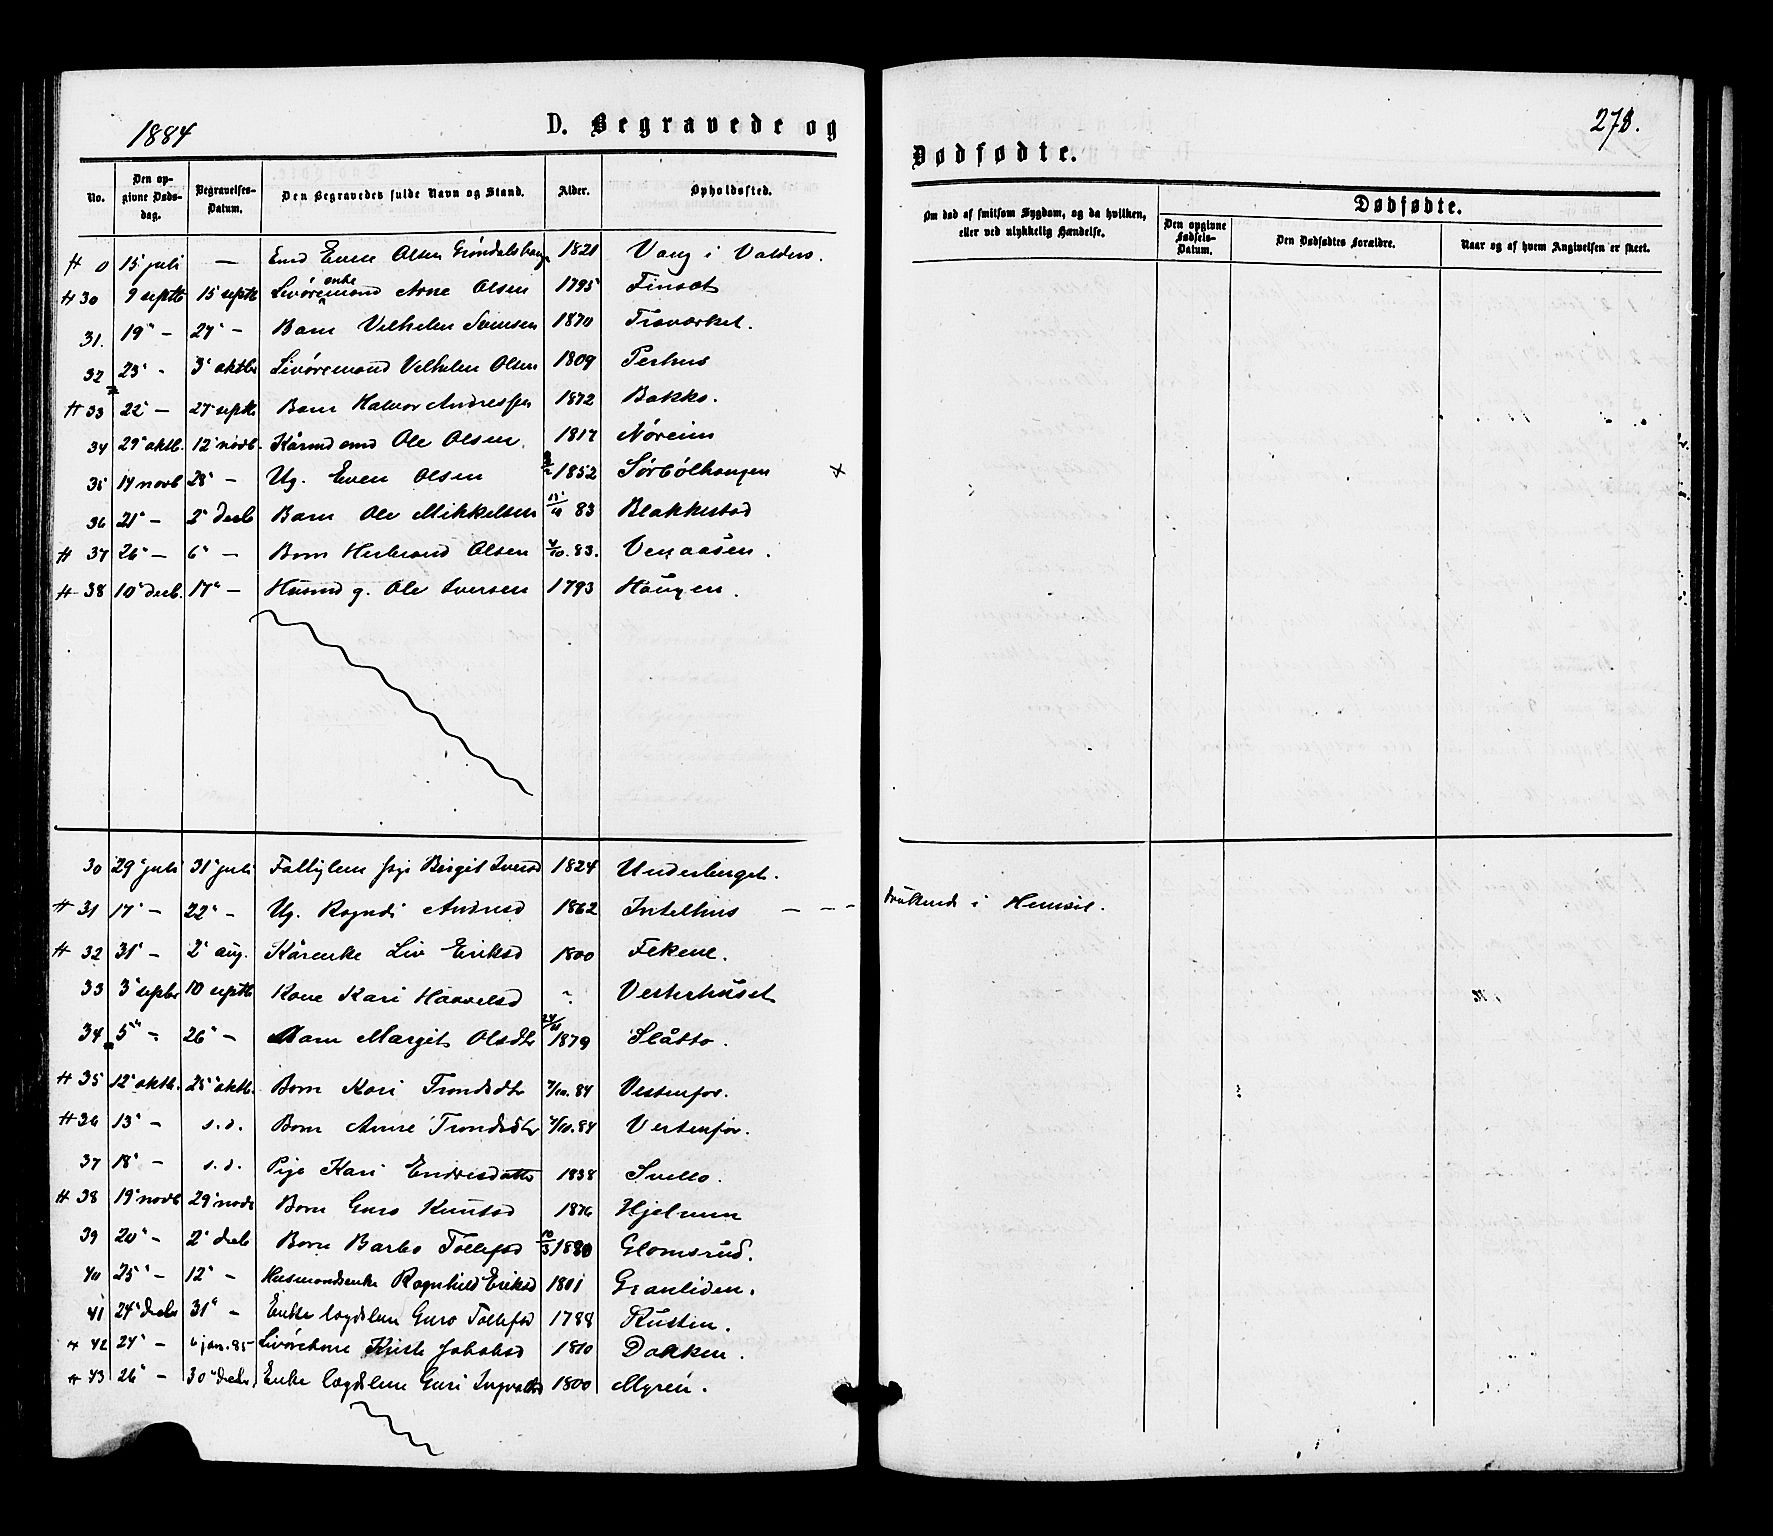 1884
D. Begravede og
No. Den opgivne Dødsdag. Begravelses-Datum. Den Begravedes fulde Navn og Stand. Alder. Opholdssted.
# 0 15 juli — Even Olsen 1821 Vang i Valders.
# 30 9 septb 15 septb Livøremand enke Arne Olsen 1795 Finset
31. 19" - 27" - Barn Vilhelm 1870
32 23" - 3" oktbr Livøremand Vilhelm Olsen 1809 Perhus
# 33 22" — 27 septb Barn Halvor Andressen 1872 Bakko.
34 29" oktb. 12" novb. Kårmd Ole Olsen. 1817 Nøreim
35 14 novb 28" - Ug. Even Olsen 1852 Sørbølhaugen
36 21" - 2" decb Barn Ole Mikkelsen 83 Blakkestad
# 37 26" — 6" — Barn Herbrand Olsen 4/10. 83. Venaasen.
# 38 10" decb. 17" — Husmd g. Ole Iversen 1793 Haugen.
30 29" juli 31" juli Birgit Iversd 1824 Underberget.
# 31 17" - 22" - Ug. Ragndi Andresd 1862 Intelhus - - -
# 32 31" - 2" aug. Kårenke Liv Eriksd 1800 Fekene.
33 3" septbr 10 septb Kone Kari Haavelsd " Vesterhuset
34 5" - 26" - Barn Margit Olsdtr 1879 Slåtto.
# 35 12" oktb. 25" oktb. Barn Kari Trondsdtr 84 Vestenfor.
# 36 13" - s.d. Barn Anne Trondsdtr 84 Vestenfor.
37 18" - s.d. Pige Kari Endresdatter 1838 Svello.
# 38 19" novb 29" novb Barn Guro Knutsd 1876 Hjelmen
39 20" - 2" decb Barn Barbo Tollefsd 1880 Glomsrud.
40 25" - 12" - Husmandsenke Ragnhild Eriksd 1801 Granliden.
41 24" decbr 31" - Enke lægdslem Guro Tollefsd 1788 Rusten.
# 42 24" - 6 jan. 85 Livørekone Jakobsd 1810 Dokken.
# 43 26" - 30" decbr Enke lægdslem Guri 1800 Myren.
278.
Dødfødte.
Om død af smitsom Sygdom, og da hvilken, eller ved ulykkelig Hændelse. Dødfødte.
Den opgivne Fødsels-Datum. Den Dødfødtes Forældre. Naar og af hvem Angivelsen er skeet.
druknede i Hemsil.